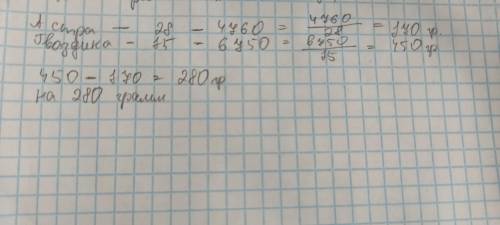 Астра — 28 — 4760 = 4760/28 = 170 г.
Гвоздика — 15 — 6750 = 6750/15 = 450 г
450 — 170 = 280 гр
на 280 грамм